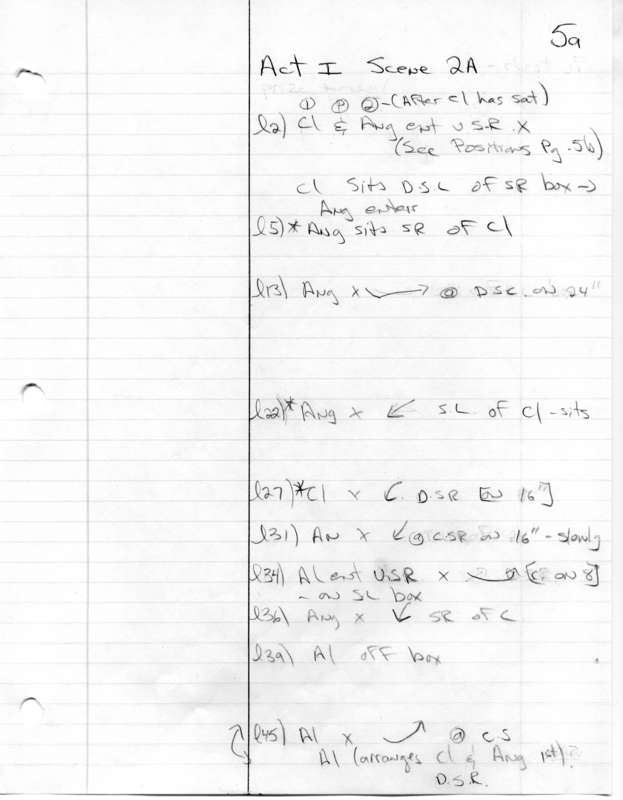 5a
Act I Scene 2A
① ② - (After cl has sat)
l2) Cl & Ang ent U.S.R. X
(See Positions Pg. 5b)
Cl Sits D.S.L of SR box →
Ang enters
l5)* Ang sits SR of Cl
l13) Ang x → @ D.S.C. on 24"
l22)* Ang x ↙ S.L. of Cl - sits
l27)* Cl x ↙ D.S.R [on 16"]
l31) An x ↙ @ C.S.R on 16" - slowly
l34) Al ent U.S.R x [C. on 8]
- on SL box
l36) Ang x ↙ SR of C
l39) Al off box
l45) Al x @ C.S
Al (arranges Cl & Ang 1st)
D.S.R.